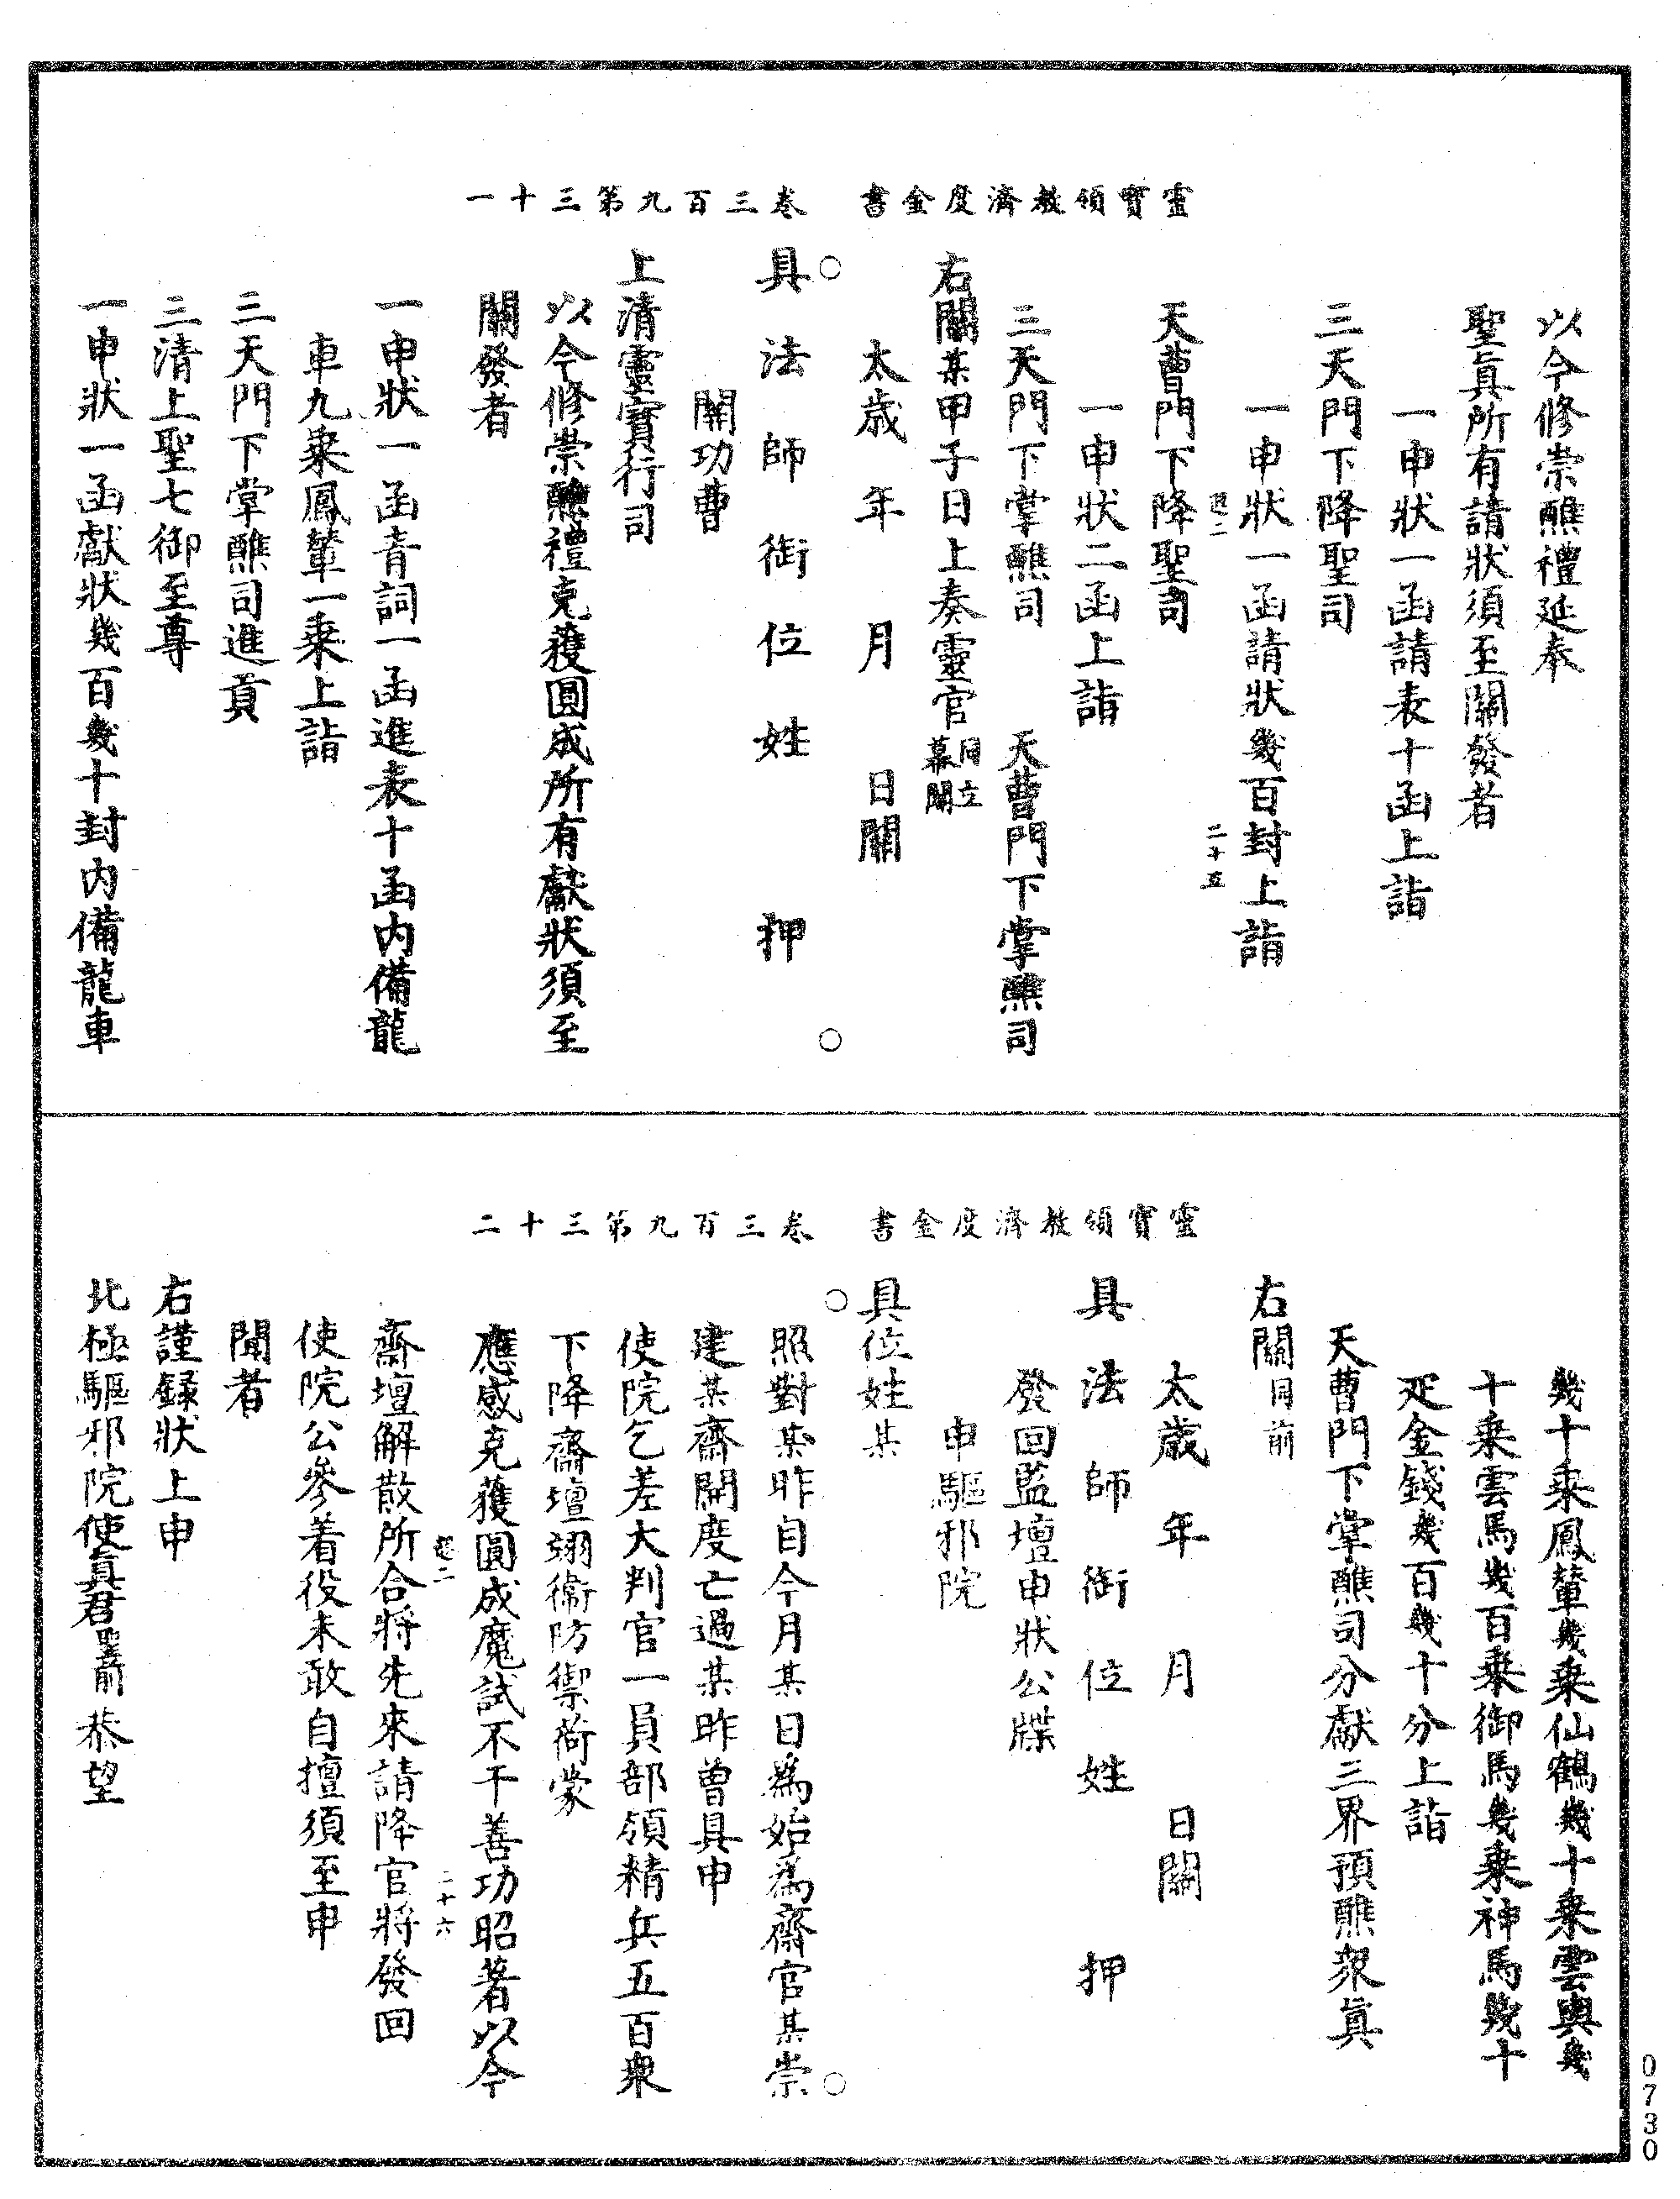 靈寶領教濟度金書　卷三百九第三十一
以今修崇醮禮延奉
聖眞所有請狀須至關發者
一申狀一函請表十函上詣
三天門下降聖司
一申狀一函請狀幾百封上詣
二十五
天曹門下降聖司
一申狀二函上詣
三天門下掌醮司　天曹門下掌醮司
右關某甲子日上奏靈官同立幕關
太歲　年　月　日關
具法師銜位姓　押
關功曹
上清靈寶行司
以今修崇醮禮克獲圓成所有獻狀須至
關發者
一申狀一函青詞一函進表十函內備龍
車九乘鳳輦一乘上詣
三天門下掌醮司進貢
三清上聖七御至尊
一申狀一函獻狀幾百幾十封內備龍車
靈寶領教濟度金書　卷三百九第三十二
幾十乘鳳輦幾乘仙鶴幾十乘雲輿幾
十乘雲馬幾百乘御馬幾乘神馬幾十
疋金錢幾百幾十分上詣
天曹門下掌醮司分獻三界預醮衆眞
右關同前
太歲　年　月　日關
具法師銜位姓　押
發回監壇申狀公牒
申驅邪院
具位姓某
照對某昨自今月某日爲始爲齋官某崇
建某齋開度亡過某昨曾具申
使院乞差大判官一員部領精兵五百衆
下降齋壇翊衞防禦荷蒙
應感克獲圓成魔試不干善功昭著以今
二十六
齋壇解散所合將先來請降官將發回
使院公參着役未敢自擅須至申
聞者
右謹錄狀上申
北極驅邪院使眞君聖前恭望
0730